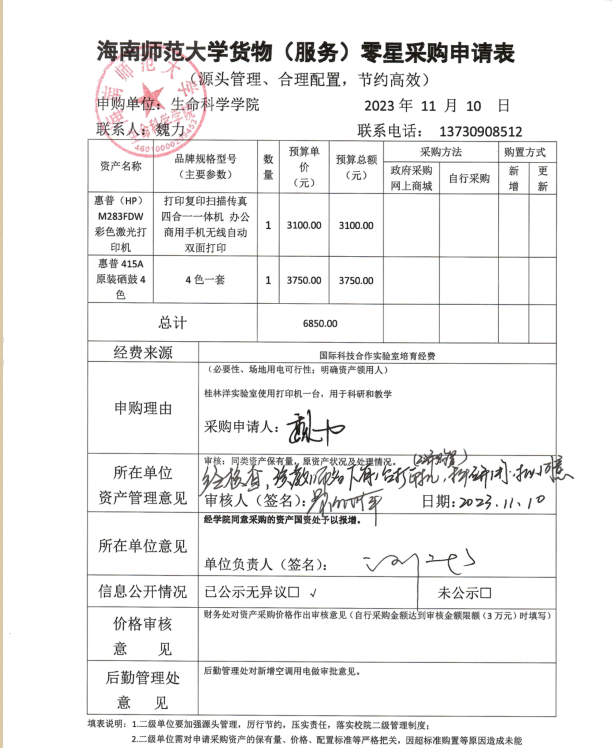 海南师范大学货物（服务）零星采购申请表
（源头管理、合理配置，节约高效）
申购单位：生命科学学院 2023 年 11 月 10 日
联系人：魏力 联系电话： 13730908512
资产名称 品牌规格型号（主要参数） 数量 预算单价（元） 预算总额（元） 采购方法 购置方式
政府采购网上商城 自行采购 新增 更新
惠普（HP）M283FDW彩色激光打印机 打印复印扫描传真四合一一体机 办公商用手机无线自动双面打印 1 3100.00 3100.00
惠普 415A 原装硒鼓 4 色 4 色一套 1 3750.00 3750.00
总计 6850.00
经费来源 国际科技合作实验室培育经费
申购理由 （必要性、场地用电可行性；明确资产领用人）
桂林洋实验室使用打印机一台，用于科研和教学
采购申请人：
所在单位资产管理意见 审核：同类资产保有量，原资产状况及处理情况。
经核查，该教师名下
审核人（签名）： 日期：2023.11.10
所在单位意见 经学院同意采购的资产国资处予以报增。
单位负责人（签名）：
信息公开情况 已公示无异议□ √ 未公示□
价格审核意 见 财务处对资产采购价格作出审核意见（自行采购金额达到审核金额限额（3 万元）时填写）
后勤管理处意 见 后勤管理处对新增空调用电做审批意见。
填表说明：1.二级单位要加强源头管理，厉行节约，压实责任，落实校院二级管理制度；
2.二级单位需对申请采购资产的保有量、价格、配置标准等严格把关，因超标准购置等原因造成未能